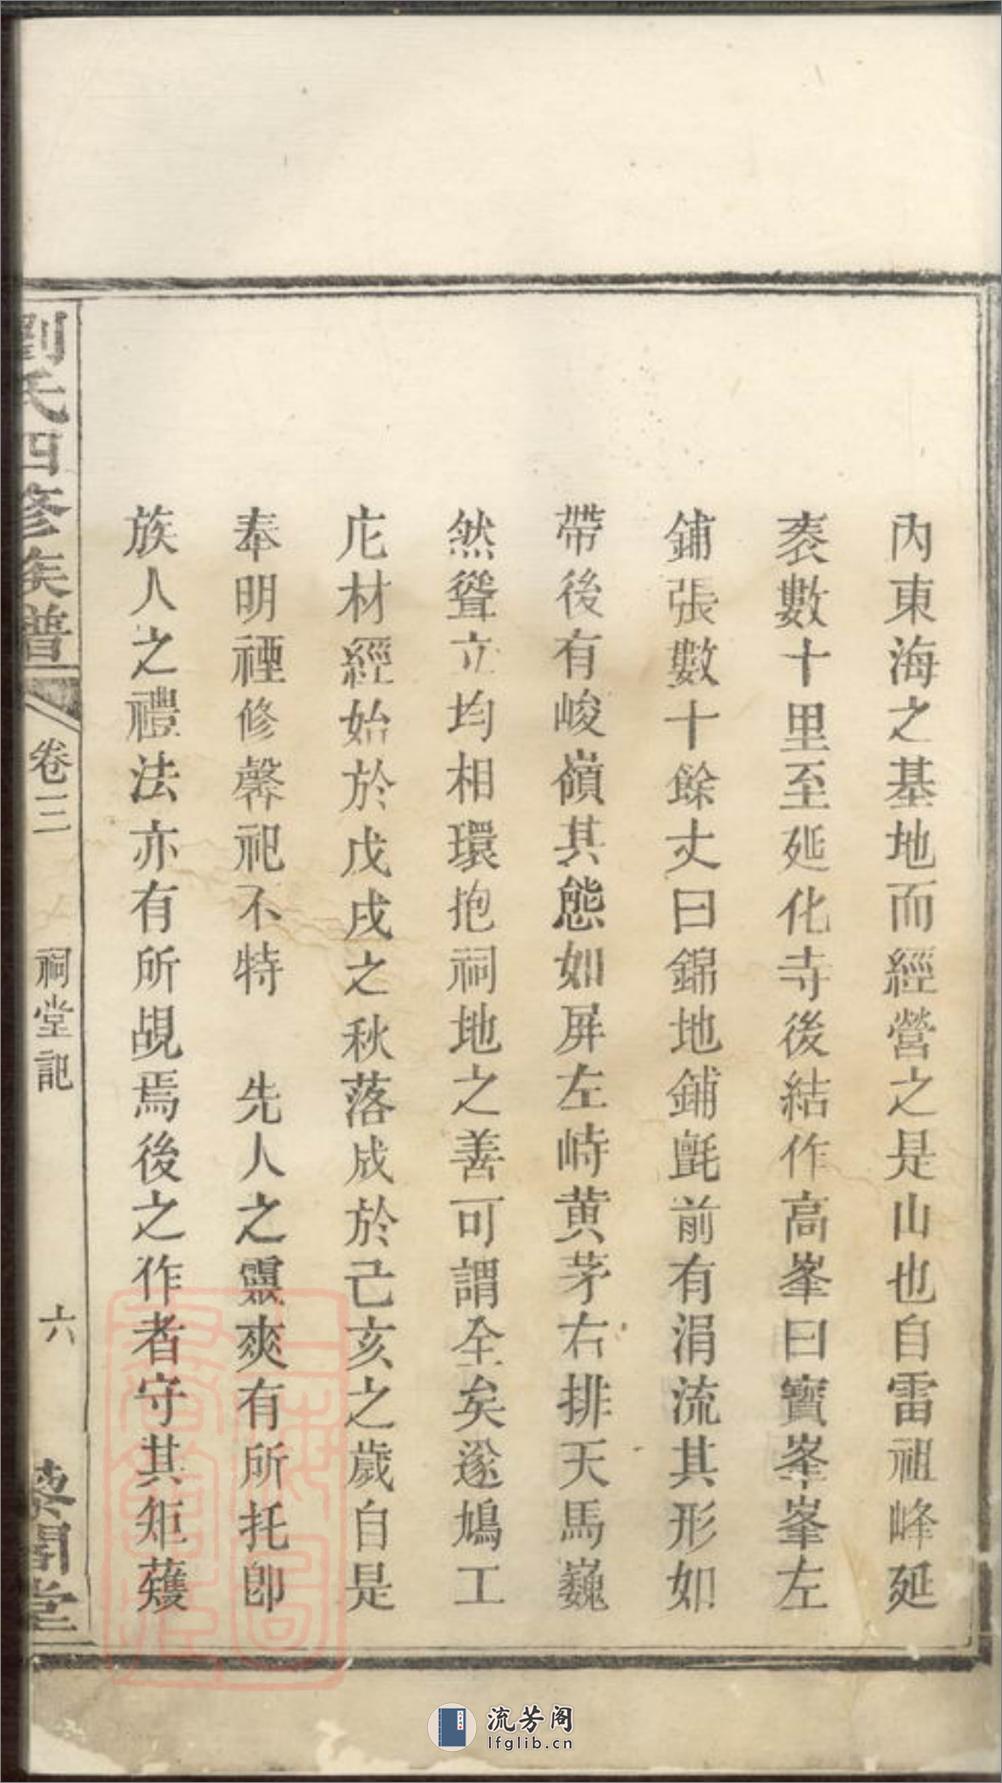 內東海之基地而經營之是山也自雷祖峰延
袤數十里至延化寺後結作高峯曰寶峯峯左
鋪張數十餘丈曰錦地鋪氈前有涓流其形如
帶後有峻嶺其態如屏左峙黄茅右排天馬巍
然聳立均相環抱祠地之善可謂全矣遂鳩工
庀材經始於戊戌之秋落成於己亥之歲自是
奉明禋修馨祀不特　先人之靈爽有所托卽
族人之禮法亦有所覘焉後之作者守其矩矱
劉氏四修族譜
卷三
祠堂記
六
藜閣堂
流芳阁
lfglib.cn